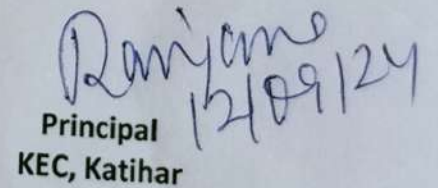 Ranjana
12/09/24
Principal
KEC, Katihar